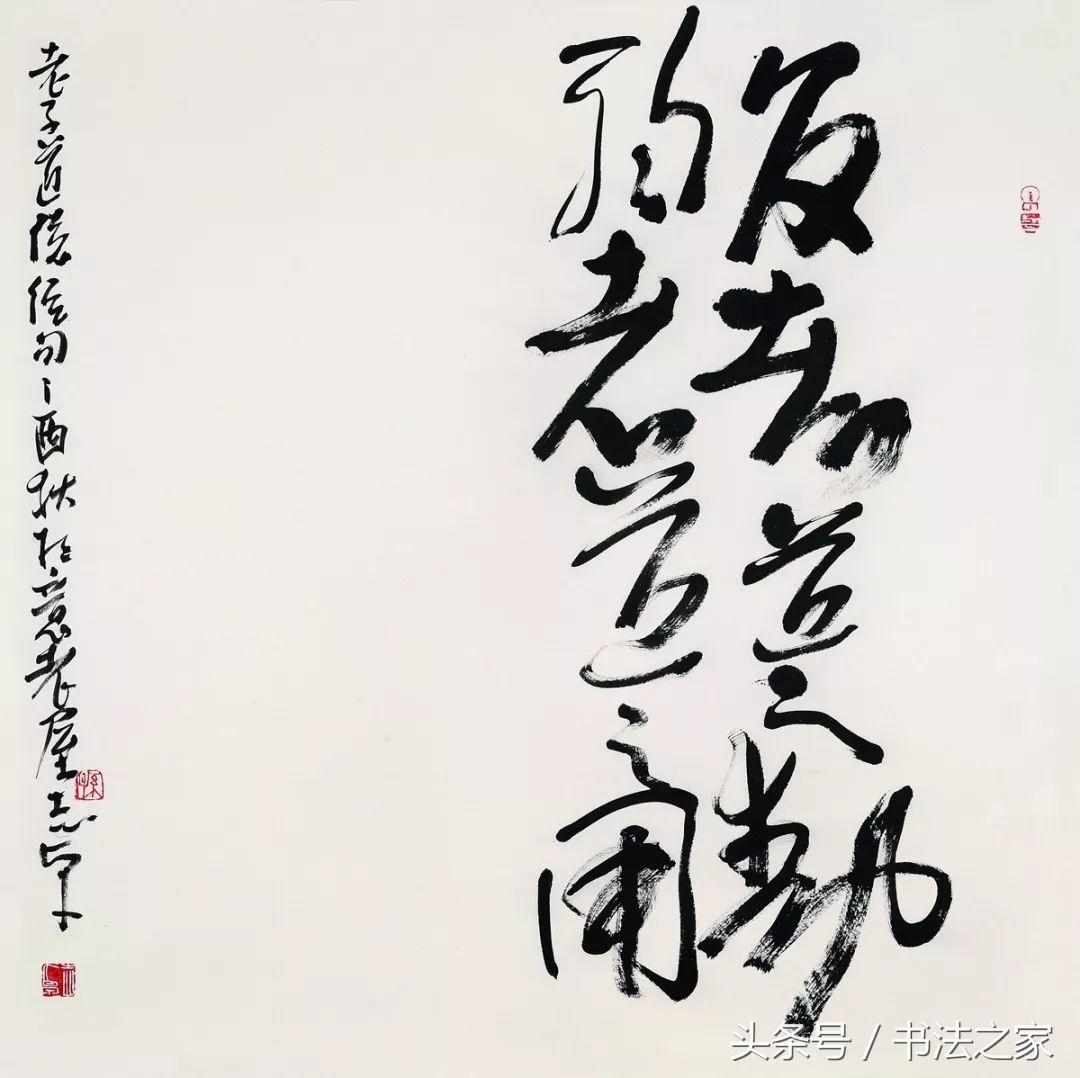 反者道之動
弱者道之用
老子道德經句丁酉秋於老屋志
头条号 / 书法之家